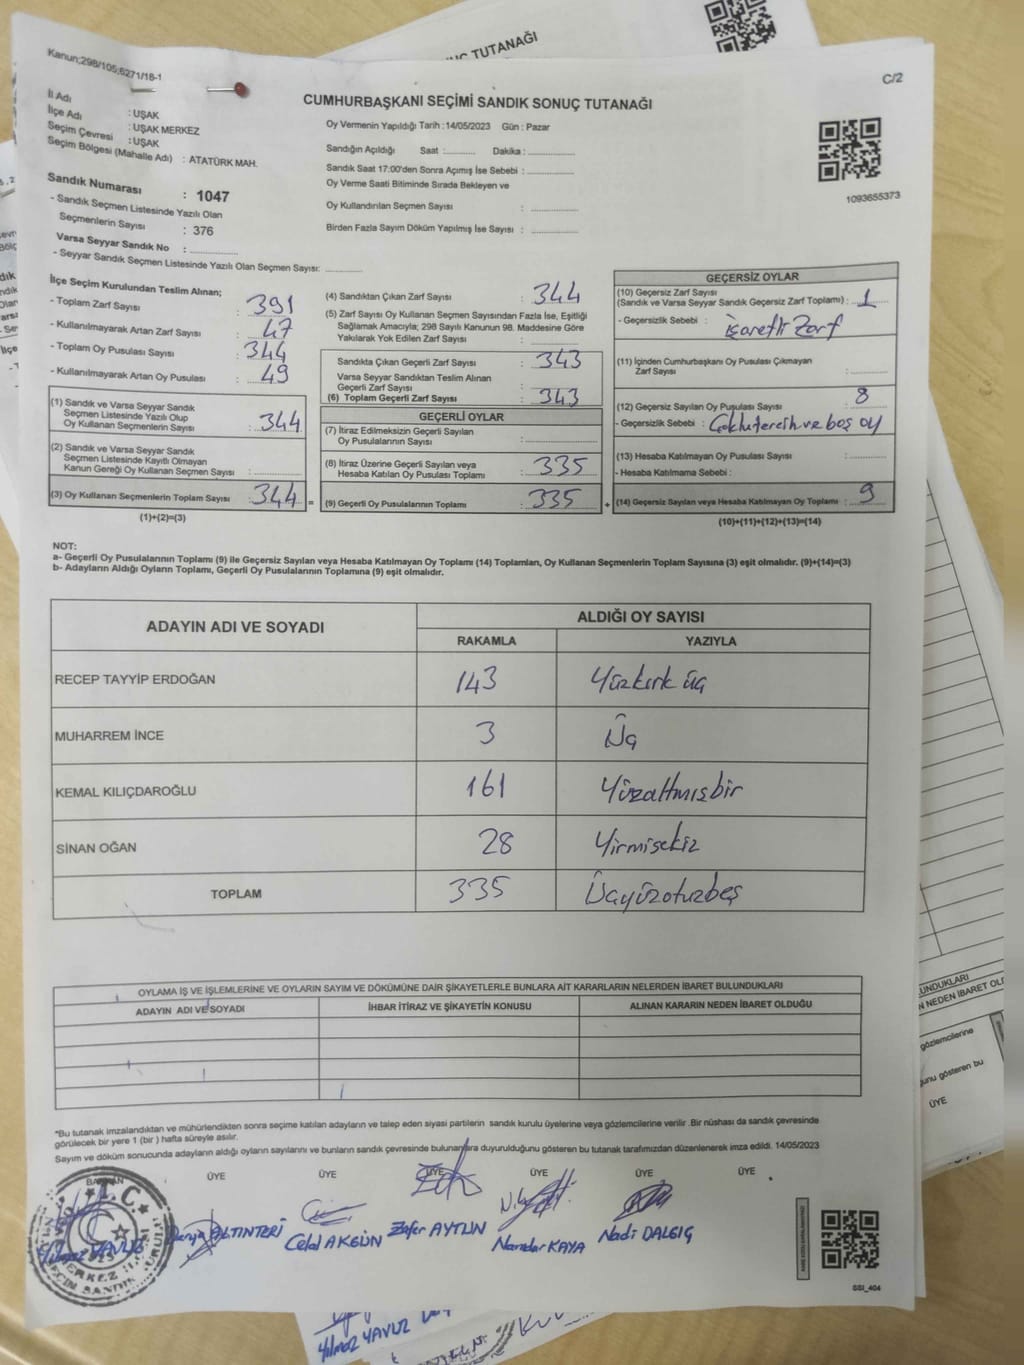 UÇ TUTANAĞI
Kanun;298/105;6271/18-1
C/2
CUMHURBAŞKANI SEÇİMİ SANDIK SONUÇ TUTANAĞI
İl Adı : UŞAK
İlçe Adı : UŞAK MERKEZ
Seçim Çevresi : UŞAK
Seçim Bölgesi (Mahalle Adı) : ATATÜRK MAH.
Sandık Numarası : 1047
- Sandık Seçmen Listesinde Yazılı Olan
Seçmenlerin Sayısı : 376
Varsa Seyyar Sandık No :
- Seyyar Sandık Seçmen Listesinde Yazılı Olan Seçmen Sayısı:
Oy Vermenin Yapıldığı Tarih : 14/05/2023 Gün : Pazar
Sandığın Açıldığı Saat : Dakika :
Sandık Saat 17:00'den Sonra Açımış İse Sebebi :
Oy Verme Saati Bitiminde Sırada Bekleyen ve
Oy Kullandırılan Seçmen Sayısı :
Birden Fazla Sayım Döküm Yapılmış İse Sayısı :
1093655373
İlçe Seçim Kurulundan Teslim Alınan;
- Toplam Zarf Sayısı : 391
- Kullanılmayarak Artan Zarf Sayısı : 47
- Toplam Oy Pusulası Sayısı : 344
- Kullanılmayarak Artan Oy Pusulası : 49
(1) Sandık ve Varsa Seyyar Sandık
Seçmen Listesinde Yazılı Olup
Oy Kullanan Seçmenlerin Sayısı : 344
(2) Sandık ve Varsa Seyyar Sandık
Seçmen Listesinde Kayıtlı Olmayan
Kanun Gereği Oy Kullanan Seçmen Sayısı :
(3) Oy Kullanan Seçmenlerin Toplam Sayısı : 344 =
(1)+(2)=(3)
(4) Sandıktan Çıkan Zarf Sayısı : 344
(5) Zarf Sayısı Oy Kullanan Seçmen Sayısından Fazla İse, Eşitliği
Sağlamak Amacıyla; 298 Sayılı Kanunun 98. Maddesine Göre
Yakılarak Yok Edilen Zarf Sayısı :
Sandıkta Çıkan Geçerli Zarf Sayısı : 343
Varsa Seyyar Sandıktan Teslim Alınan
Geçerli Zarf Sayısı :
(6) Toplam Geçerli Zarf Sayısı : 343
GEÇERLİ OYLAR
(7) İtiraz Edilmeksizin Geçerli Sayılan
Oy Pusulalarının Sayısı :
(8) İtiraz Üzerine Geçerli Sayılan veya
Hesaba Katılan Oy Pusulaları Toplamı : 335
(9) Geçerli Oy Pusulalarının Toplamı : 335 +
GEÇERSİZ OYLAR
(10) Geçersiz Zarf Sayısı
(Sandık ve Varsa Seyyar Sandık Geçersiz Zarf Toplamı) : 1
- Geçersizlik Sebebi : işaretlir Zarf
(11) İçinden Cumhurbaşkanı Oy Pusulası Çıkmayan
Zarf Sayısı :
(12) Geçersiz Sayılan Oy Pusulası Sayısı : 8
- Geçersizlik Sebebi : ve boş oy
(13) Hesaba Katılmayan Oy Pusulası Sayısı :
- Hesaba Katılmama Sebebi :
(14) Geçersiz Sayılan veya Hesaba Katılmayan Oy Toplamı : 9
(10)+(11)+(12)+(13)=(14)
NOT:
a- Geçerli Oy Pusulalarının Toplamı (9) ile Geçersiz Sayılan veya Hesaba Katılmayan Oy Toplamı (14) Toplamları, Oy Kullanan Seçmenlerin Toplam Sayısına (3) eşit olmalıdır. (9)+(14)=(3)
b- Adayların Aldığı Oyların Toplamı, Geçerli Oy Pusulalarının Toplamına (9) eşit olmalıdır.
ADAYIN ADI VE SOYADI ALDIĞI OY SAYISI
RAKAMLA YAZIYLA
RECEP TAYYİP ERDOĞAN 143 Yüzkırk üç
MUHARREM İNCE 3 Üç
KEMAL KILIÇDAROĞLU 161 Yüzaltmışbir
SİNAN OĞAN 28 Yirmisekiz
TOPLAM 335 Üçyüzotuzbeş
OYLAMA İŞ VE İŞLEMLERİNE VE OYLARIN SAYIM VE DÖKÜMÜNE DAİR ŞİKAYETLERLE BUNLARA AİT KARARLARIN NELERDEN İBARET BULUNDUKLARI
ADAYIN ADI VE SOYADI İHBAR İTİRAZ VE ŞİKAYETİN KONUSU ALINAN KARARIN NEDEN İBARET OLDUĞU
"Bu tutanak imzalandıktan ve mühürlendikten sonra seçime katılan adayların ve talep eden siyasi partilerin sandık kurulu üyelerine veya gözlemcilerine verilir .Bir nüshası da sandık çevresinde
görülecek bir yere 1 (bir ) hafta süreyle asılır.
Sayım ve döküm sonucunda adayların aldığı oyların sayılarını ve bunların sandık çevresinde bulunanlara duyurulduğunu gösteren bu tutanak tarafımızdan düzenlenerek imza edildi. 14/05/2023
BAŞKAN ÜYE ÜYE ÜYE ÜYE ÜYE ÜYE
Yılmaz YAVUZ Derya ALTINTERİ Celal AKGÜN Zafer AYTUN Namdar KAYA Nadi DALGIÇ
T.C.
MERKEZ İLÇESİ
SEÇİM SANDIK KURULU
SSI_404
Yılmaz YAVUZ
UNDUKLARI
N NEDEN İBARET OLD
gözlemcilerine
unu gösteren bu
ÜYE